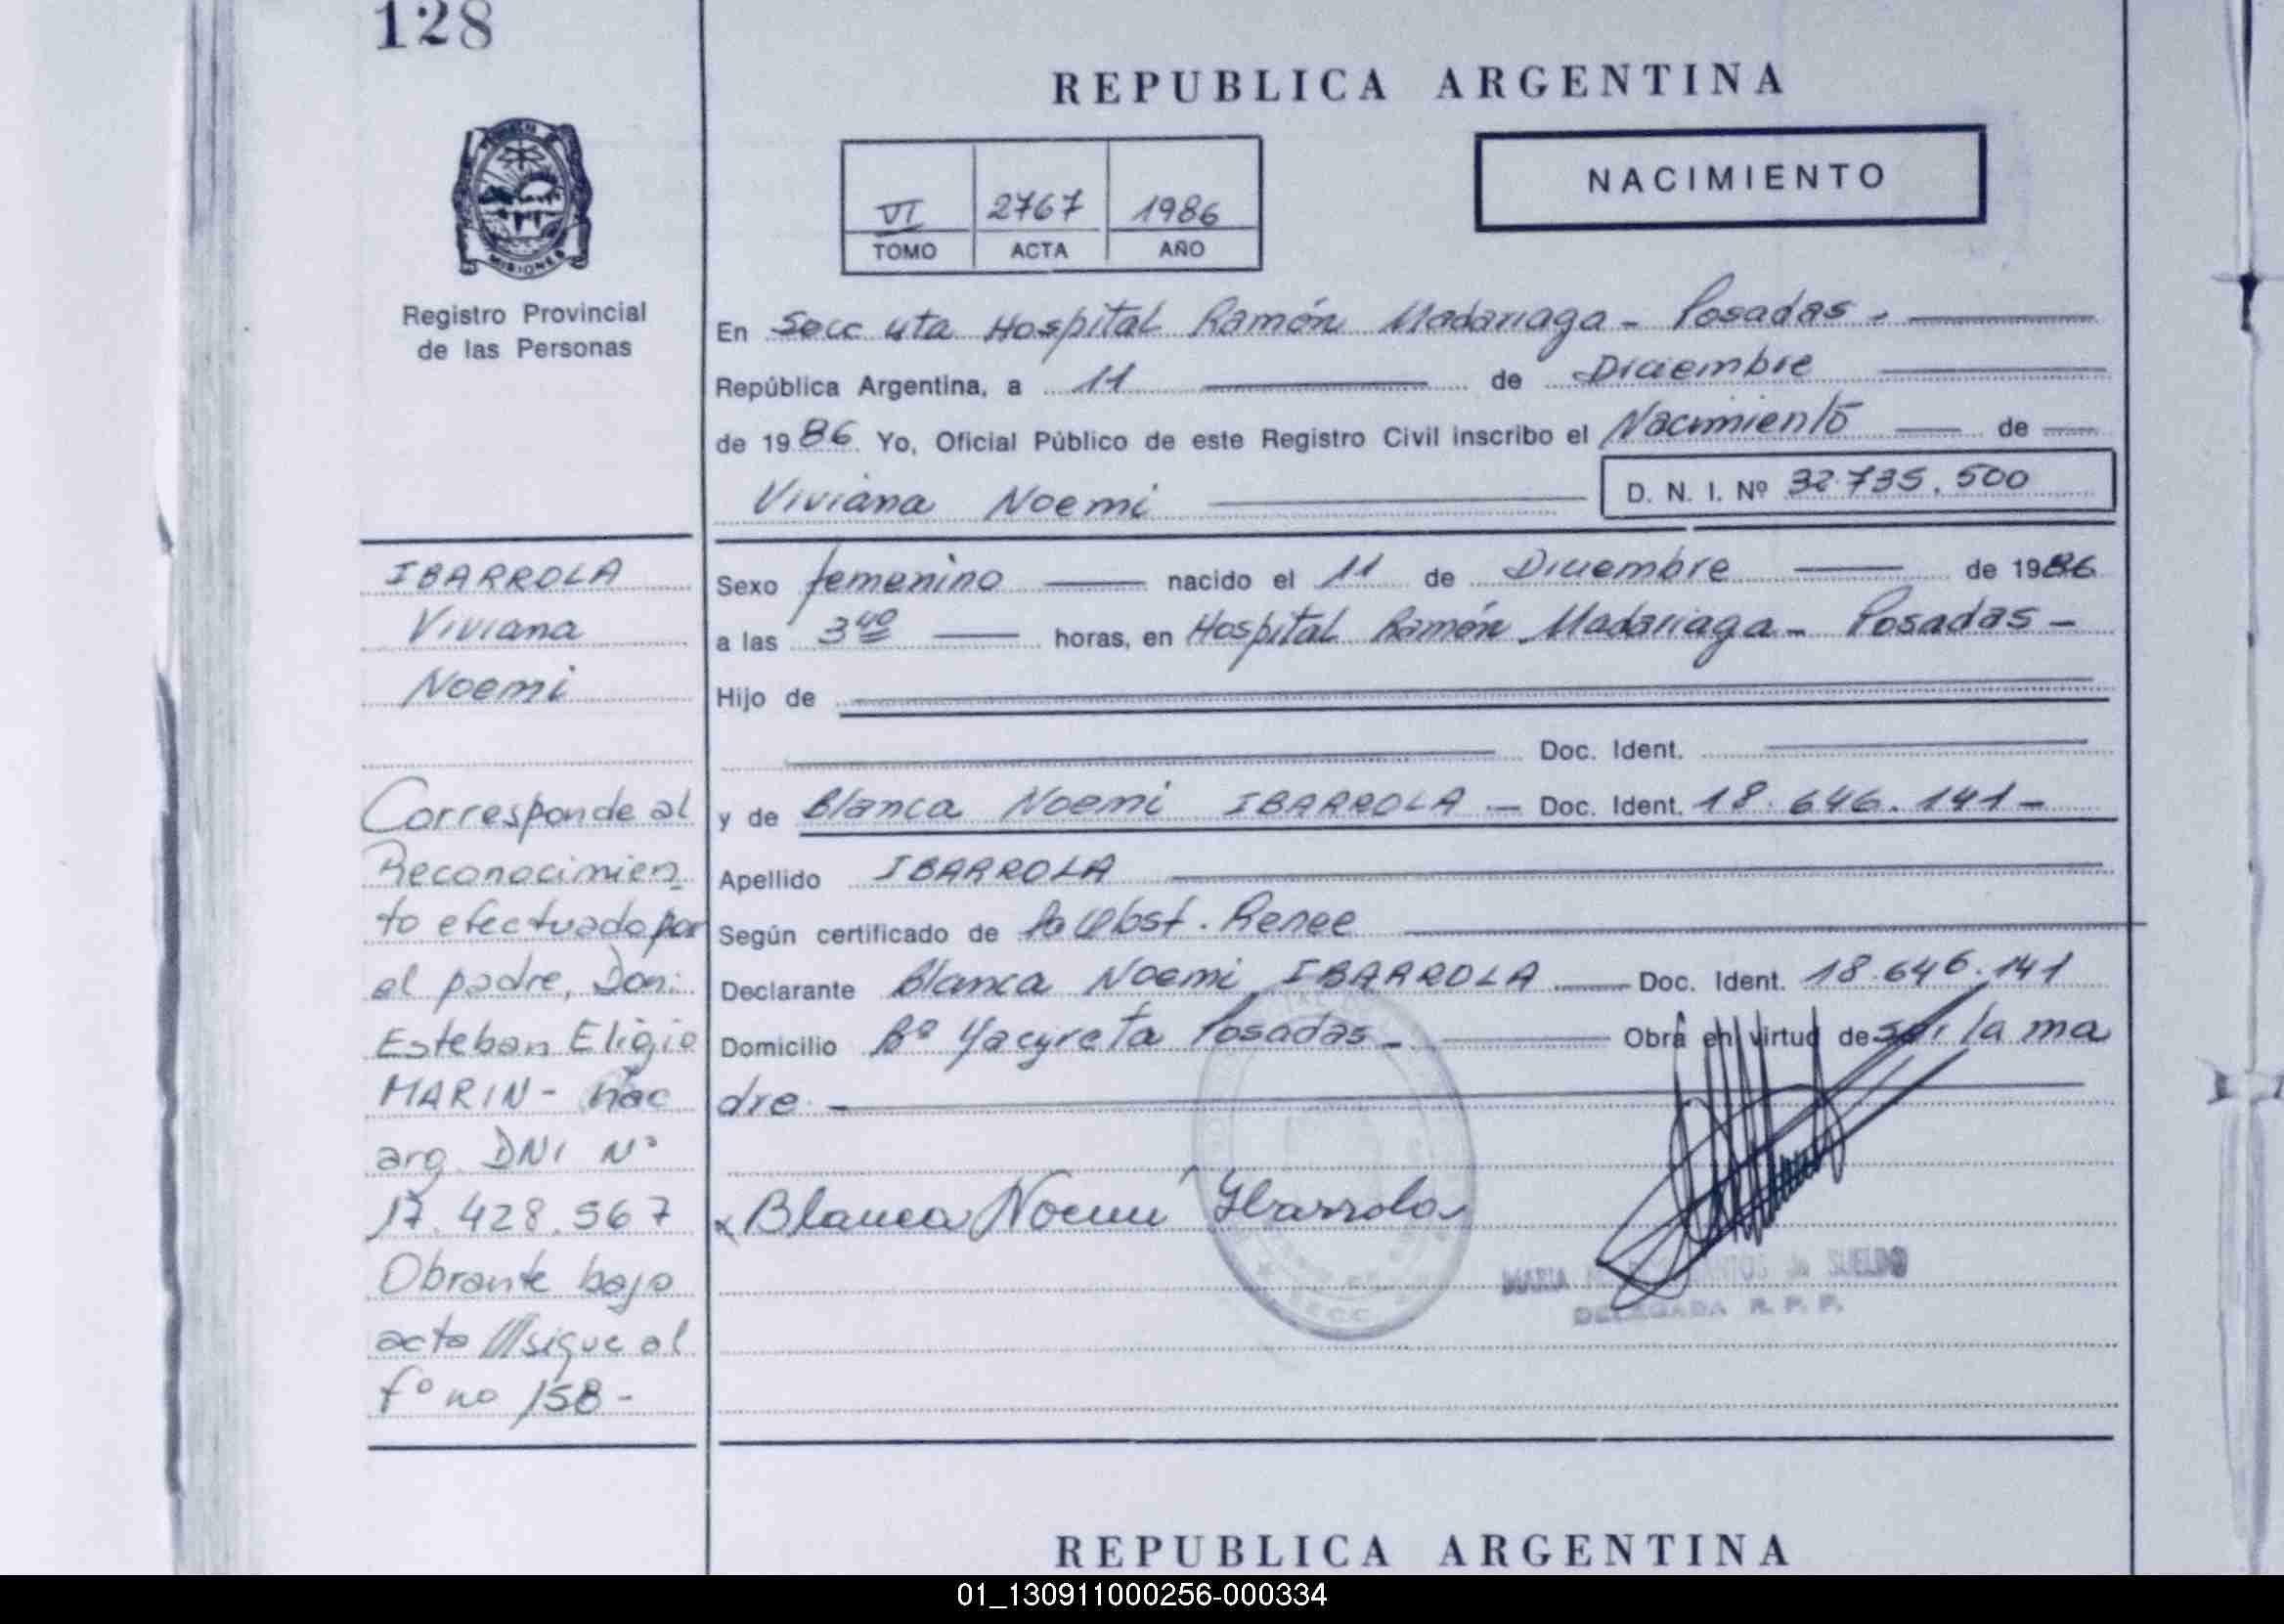 128
REPUBLICA ARGENTINA
NACIMIENTO
VI 2767 1986
TOMO ACTA AÑO
MISIONES
Registro Provincial
de las Personas
En Secc 4ta Hospital Ramón Madariaga - Posadas -
República Argentina, a 11 de Diciembre
de 1986 Yo, Oficial Público de este Registro Civil inscribo el Nacimiento de
Viviana Noemi D. N. I. Nº 32.735.500
IBARROLA
Viviana
Noemi
Corresponde al
Reconocimien
to efectuado por
el padre, Don:
Esteban Eligio
MARIN - nac
arg. DNI Nº
17.428.567
Obrante bajo
acta /// sigue al
fº no 158 -
Sexo femenino nacido el 11 de Diciembre de 1986
a las 3 40 horas, en Hospital Ramón Madariaga - Posadas -
Hijo de
Doc. Ident.
y de Blanca Noemi IBARROLA - Doc. Ident. 18.646.141 -
Apellido IBARROLA
Según certificado de Obst. Renee
Declarante Blanca Noemi IBARROLA Doc. Ident. 18.646.141
Domicilio Bº Yacyreta Posadas - Obra en virtud de ser la ma
dre -
Blanca Noemi Ibarrola
MARIA de SUELDO
DELEGADA R. P. P.
REPUBLICA ARGENTINA
01_130911000256-000334